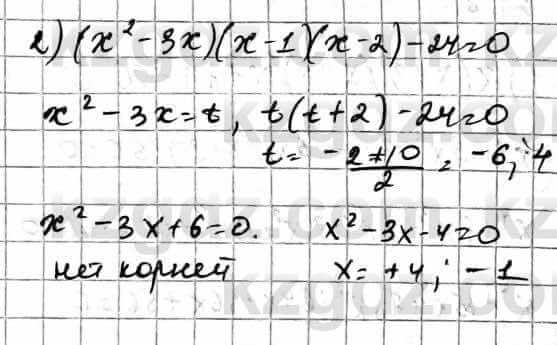 2) (x² - 3x)(x - 1)(x - 2) - 24 = 0
x² - 3x = t, t(t + 2) - 24 = 0
t = -2 ± 10 / 2 = -6; 4
x² - 3x + 6 = 0. x² - 3x - 4 = 0
нет корней x = +4; -1